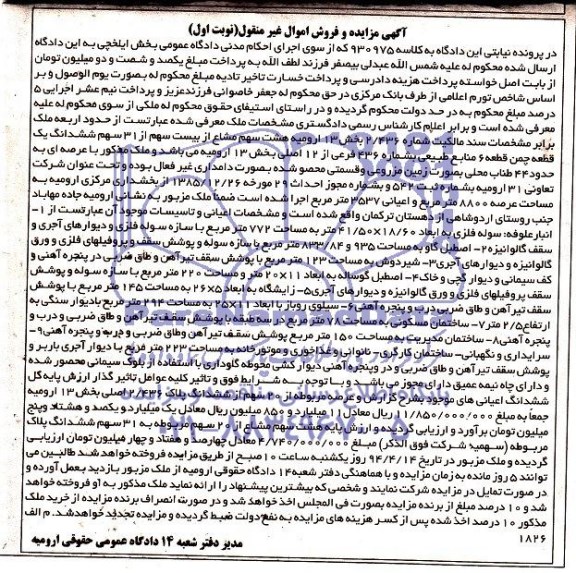 آگهی مزایده و فروش اموال غیر منقول(نوبت اول)
در پرونده نیابتی این دادگاه به کلاسه ۹۳۰۹۷۵ که از سوی اجرای احکام مدنی دادگاه عمومی بخش ایلخچی به این دادگاه
ارسال شده محکوم له علیه شمس الله عبدلی بیصفر فرزند لطف الله به پرداخت مبلغ یکصد و شصت و دو میلیون تومان
از بابت اصل خواسته پرداخت هزینه دادرسی و پرداخت خسارت تاخیر تادیه مبلغ محکوم له بصورت یوم الوصول و بر
اساس شاخص تورم اعلامی از طرف بانک مرکزی در حق محکوم له جعفر خاصوانی فرزند عزیز و پرداخت نیم عشر اجرایی ۵
درصد مبلغ محکوم به در حد دولت محکوم گردیده و در راستای استیفای حقوق محکوم له ملکی از سوی محکوم له علیه
معرفی شده است و برابر اعلام کارشناس رسمی دادگستری مشخصات ملک معرفی شده عبارتست از حدود اربعه ملک
برابر مشخصات سند مالکیت شماره ۲۴۳۶ بخش ۱۳ ارومیه هشت سهم مشاع از بیست سهم از ۳۱ سهم ششدانگ یک
قطعه چمن قطعه ۶ منابع طبیعی بشماره ۲۳۶ فرعی از ۱۲ اصلی بخش ۱۳ ارومیه می باشد و ملک مذکور با عرصه ای به
حدود ۴۴ طناب محلی بصورت زمین مزروعی وقسمتی محصور شده بصورت دامداری غیر فعال بوده و تحت عنوان شرکت
تعاونی ۳۱ ارومیه بشماره ثبت ۵۴۲ و بشماره مجوز احداث ۲۹ مورخه ۱۳۸۵/۱۲/۲۶ از بخشداری مرکزی ارومیه به
مساحت عرصه ۸۸۰۰ متر مربع و اعیانی ۳۵۳۷ متر مربع اجرا شده است ضمنا ملک مزبور به نشانی ارومیه جاده مهاباد
جنب روستای اردوشاهی از دهستان ترکمان واقع شده است و مشخصات اعیانی و تاسیسات موجود آن عبارتست از ۱-
انبار علوفه: سوله فلزی به ابعاد ۱۸/۶۰×۴۱/۵۰ متر به مساحت ۷۷۲ متر مربع با سازه سوله فلزی و دیوارهای آجری و
سقف گالوانیزه ۲- اصطبل گاو به مساحت ۹۳۵ و ۸۳۳/۸۴ متر مربع با سازه سوله و پوشش سقف و پروفیلهای فلزی و ورق
گالوانیزه و دیوارهای آجری ۳- شیردوش به مساحت ۱۲۳ متر مربع با پوشش سقف تیر آهن و طاق ضربی در پنجره آهنی و
کف سیمانی و دیوار گچی و خاک ۴- اصطبل گوساله به ابعاد ۱۱×۲۰ متر و مساحت ۲۲۰ متر مربع با سازه سوله و پوشش
سقف پروفیلهای فلزی و ورق گالوانیزه و دیوارهای آجری ۵- زایشگاه به ابعاد ۵×۲۶ به مساحت ۱۴۵ متر مربع با پوشش
سقف تیر آهن و طاق ضربی درب و پنجره آهنی ۶- سیلوی روباز با ابعاد ۲۵×۱۲ به مساحت ۲۹۴ متر مربع با دیوار سنگی به
ارتفاع ۲/۵ متر ۷- ساختمان مسکونی به مساحت ۷۸ متر مربع در سه طبقه با پوشش سقف تیر آهن و طاق ضربی و درب و
پنجره آهنی ۸- ساختمان مدیریت به مساحت ۱۵۰ متر مربع پوشش سقف تیر آهن وطاق ضربی و درب و پنجره آهنی ۹-
سرایداری و نگهبانی- ساختمان کارگری- نانوایی و غذاخوری و موتورخانه به مساحت ۲۲۳ متر مربع با دیوار آجری باربر و
پوشش سقف تیر آهن و طاق ضربی و در و پنجره آهنی دیوار کشی محوطه گاوداری با استفاده از بلوک سیمانی محصور شده
و دارای چاه نیمه عمیق دارای مجوز می باشد و با توجه به شرایط فوق و تاثیر کلیه عوامل تاثیر گذار ارزش پایه کل
ششدانگ اعیانی های موجود بشرح گزارش و عرصه مربوطه از ۲۰ سهم از ششدانگ پلاک ۲۴۳۶ اصلی بخش ۱۳ ارومیه
جمعا به مبلغ ۱۱/۸۵۰/۰۰۰/۰۰۰ ریال معادل ۱۱ میلیارد و ۸۵۰ میلیون ریال معادل یک میلیارد و یکصد و هشتاد وپنج
میلیون تومان برآورد و ارزیابی گردیده و ارزش پایه ۸ سهم مشاع از ۲۰ سهم مربوطه به ۳۱ سهم ششدانگ پلاک
مربوطه (سهمیه شرکت فوق الذکر) مبلغ ۴/۷۴۰/۰۰۰/۰۰۰ معادل چهارصد و هفتاد و چهار میلیون تومان ارزیابی
گردیده و ملک مزبور در تاریخ ۹۴/۴/۱۴ روز یکشنبه ساعت ۱۰ صبح از طریق مزایده فروخته خواهد شد طالبین می
توانند ۵ روز مانده به زمان مزایده و با هماهنگی دفتر شعبه ۱۴ دادگاه حقوقی ارومیه از ملک مزبور بازدید بعمل آورده و
در صورت تمایل در مزایده شرکت نمایند و شخصی که بیشترین پیشنهاد را ارائه نماید ملک مذکور به او فروخته خواهد
شد و ۱۰ درصد مبلغ از برنده مزایده بصورت فی المجلس اخذ خواهد شد و در صورت انصراف برنده مزایده از خرید ملک
مذکور ۱۰ درصد اخذ شده پس از کسر هزینه های مزایده به نفع دولت ضبط گردیده و مزایده تجدید خواهد شد. م الف
۱۸۲۶
مدیر دفتر شعبه ۱۴ دادگاه عمومی حقوقی ارومیه